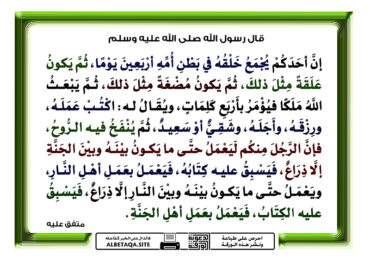 قال رسول الله صلى الله عليه وسلم
إنَّ أحَدَكُمْ يُجْمَعُ خَلْقُهُ في بَطْنِ أُمِّهِ أرْبَعِينَ يَوْمًا، ثُمَّ يَكونُ
عَلَقَةً مِثْلَ ذلكَ، ثُمَّ يَكونُ مُضْغَةً مِثْلَ ذلكَ، ثُمَّ يَبْعَثُ
اللَّهُ مَلَكًا فيُؤْمَرُ بأَرْبَعِ كَلِمَاتٍ، ويُقَالُ له: اكْتُبْ عَمَلَهُ،
ورِزْقَهُ، وأَجَلَهُ، وشَقِيٌّ أوْ سَعِيدٌ، ثُمَّ يُنْفَخُ فيه الرُّوحُ،
فإنَّ الرَّجُلَ مِنكُم لَيَعْمَلُ حتَّى ما يَكونُ بيْنَهُ وبيْنَ الجَنَّةِ
إلَّا ذِرَاعٌ، فَيَسْبِقُ عليه كِتَابُهُ، فَيَعْمَلُ بعَمَلِ أهْلِ النَّارِ،
ويَعْمَلُ حتَّى ما يَكونُ بيْنَهُ وبيْنَ النَّارِ إلَّا ذِرَاعٌ، فَيَسْبِقُ
عليه الكِتَابُ، فَيَعْمَلُ بعَمَلِ أهْلِ الجَنَّةِ.
متفق عليه
احرص على طباعة
ونشر هذه الورقة
الدال على الخير كفاعله
ALBETAQA.SITE